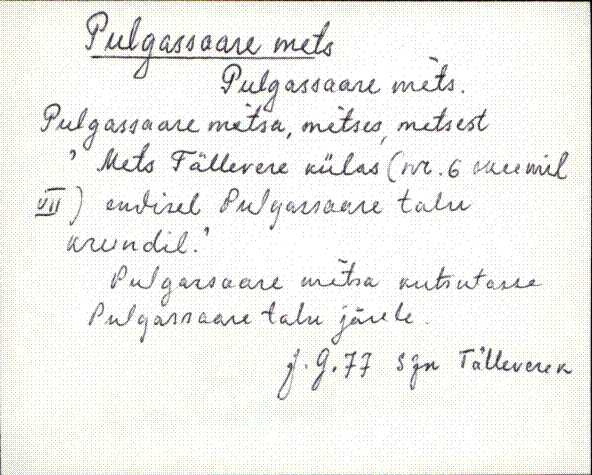 Pulgassaare mets
Pulgassaare mèts.
Pulgassaare mètsa, mètses, metsest
' Mets Tällevere külas (nr. 6 skeemil
VII) endisel Pulgassaare talu
krundil.'
Pulgassaare mètsa kutsutasse
Pulgassaare talu järele.
J. G. 77 Sjn Tällevere k